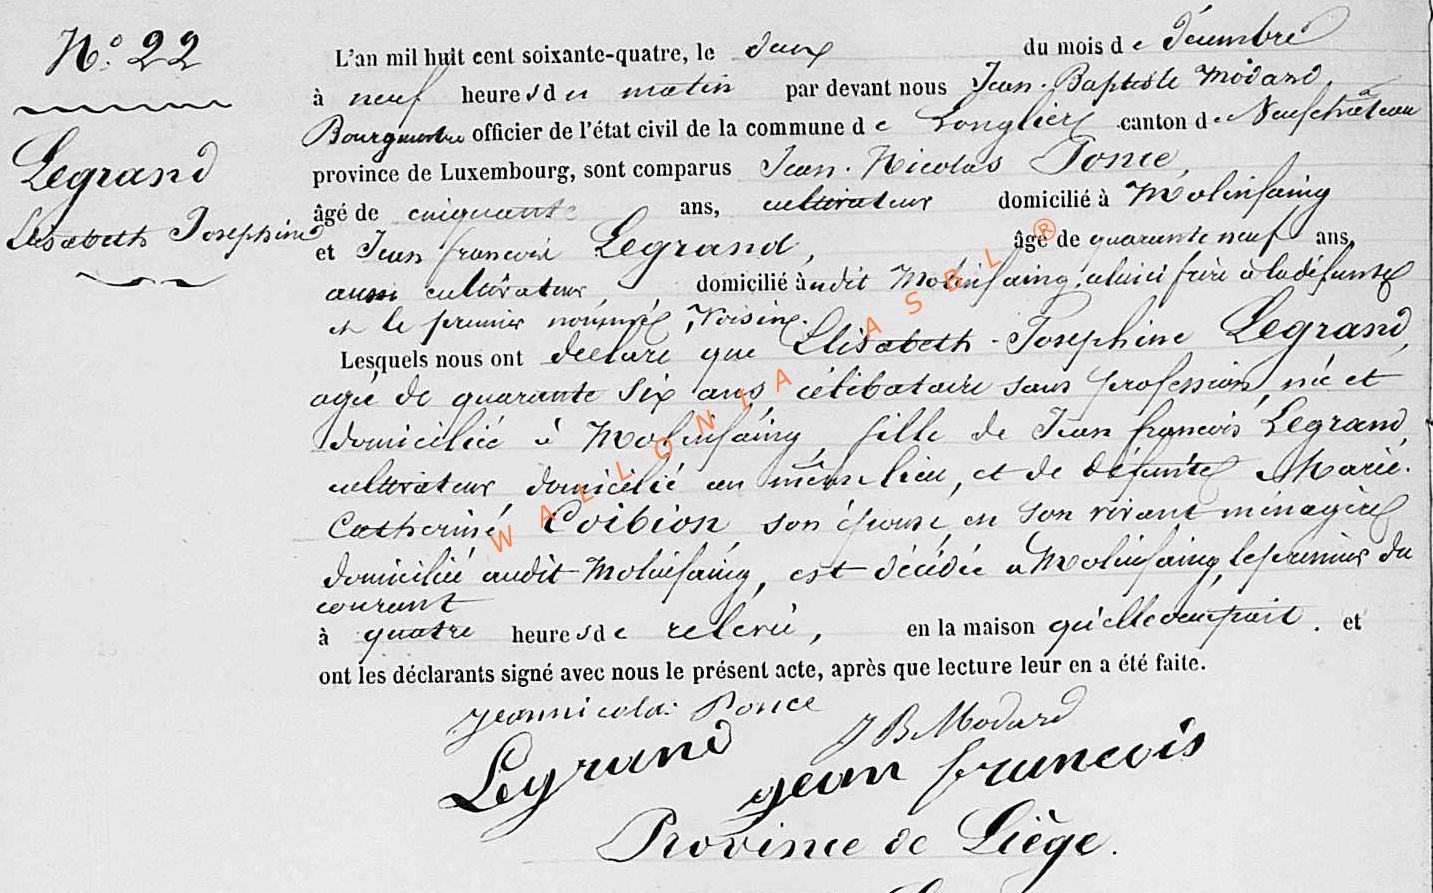 N° 22
Legrand
Elisabeth Josephine
L'an mil huit cent soixante-quatre, le deux du mois de décembre
à neuf heures du matin par devant nous Jean-Baptiste Modard,
Bourgmestre officier de l'état civil de la commune de Longlier canton de Neufchâteau
province de Luxembourg, sont comparus Jean-Nicolas Ponce,
âgé de cinquante ans, cultivateur domicilié à Molinfaing
et Jean françois Legrand, âgé de quarante neuf ans,
aussi cultivateur, domicilié audit Molinfaing, celui ci frère à la défunte
et le premier nommé, Voisin.
Lesquels nous ont declaré que Elisabeth-Josephine Legrand,
agée de quarante six ans célibataire sans profession, née et
domiciliée à Molinfaing, fille de Jean françois Legrand,
cultivateur, domicilié au même lieu, et de défunte Marie-
Catherine Coibion, son épouse, en son vivant ménagère
domiciliée audit Molinfaing, est décédée à Molinfaing, le premier du
courant
à quatre heures de relevée, en la maison qu'elle occupait. et
ont les déclarants signé avec nous le présent acte, après que lecture leur en a été faite.
Jeannicolas Ponce
J B Modard
Legrand jean francois
Province de Liège.
WALLONIA ASBL ®